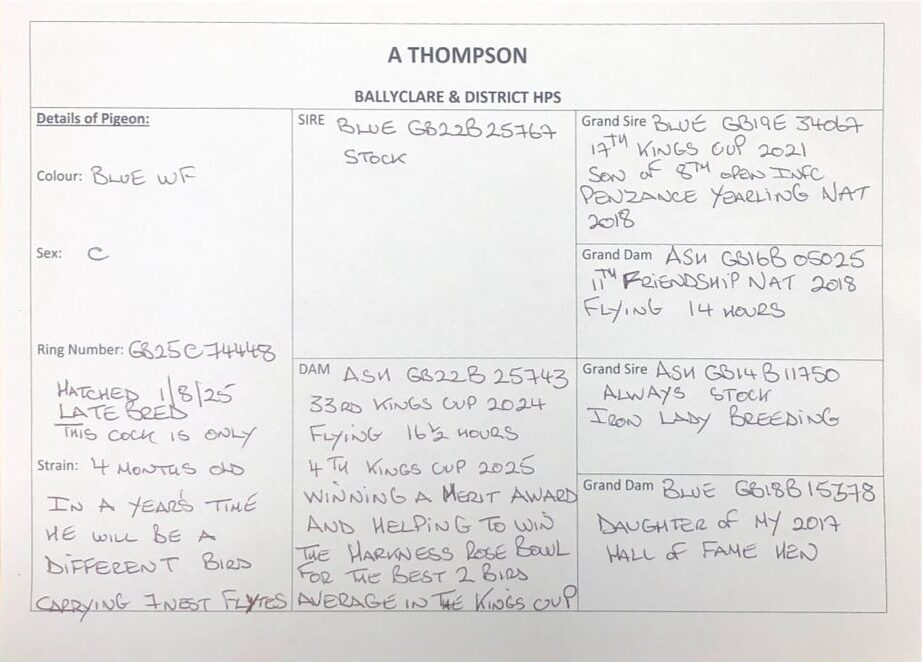 A THOMPSON
BALLYCLARE & DISTRICT HPS
Details of Pigeon:
Colour: BLUE WF
Sex: C
Ring Number: GB25C74448
HATCHED 1/8/25
LATE BRED
THIS COCK IS ONLY
Strain: 4 MONTHS OLD
IN A YEAR'S TIME
HE WILL BE A
DIFFERENT BIRD
CARRYING 7 NEST FLYTES
SIRE BLUE GB22B25767
STOCK
DAM ASH GB22B 25743
33RD KINGS CUP 2024
FLYING 16½ HOURS
4TH KINGS CUP 2025
WINNING A MERIT AWARD
AND HELPING TO WIN
THE HARKNESS ROSE BOWL
FOR THE BEST 2 BIRD
AVERAGE IN THE KINGS CUP
Grand Sire BLUE GB19E 34067
17TH KINGS CUP 2021
SON OF 8TH OPEN INFC
PENZANCE YEARLING NAT
2018
Grand Dam ASH GB16B 05025
11TH FRIENDSHIP NAT 2018
FLYING 14 HOURS
Grand Sire ASH GB14B11750
ALWAYS STOCK
IRON LADY BREEDING
Grand Dam BLUE GB18B15378
DAUGHTER OF MY 2017
HALL OF FAME HEN